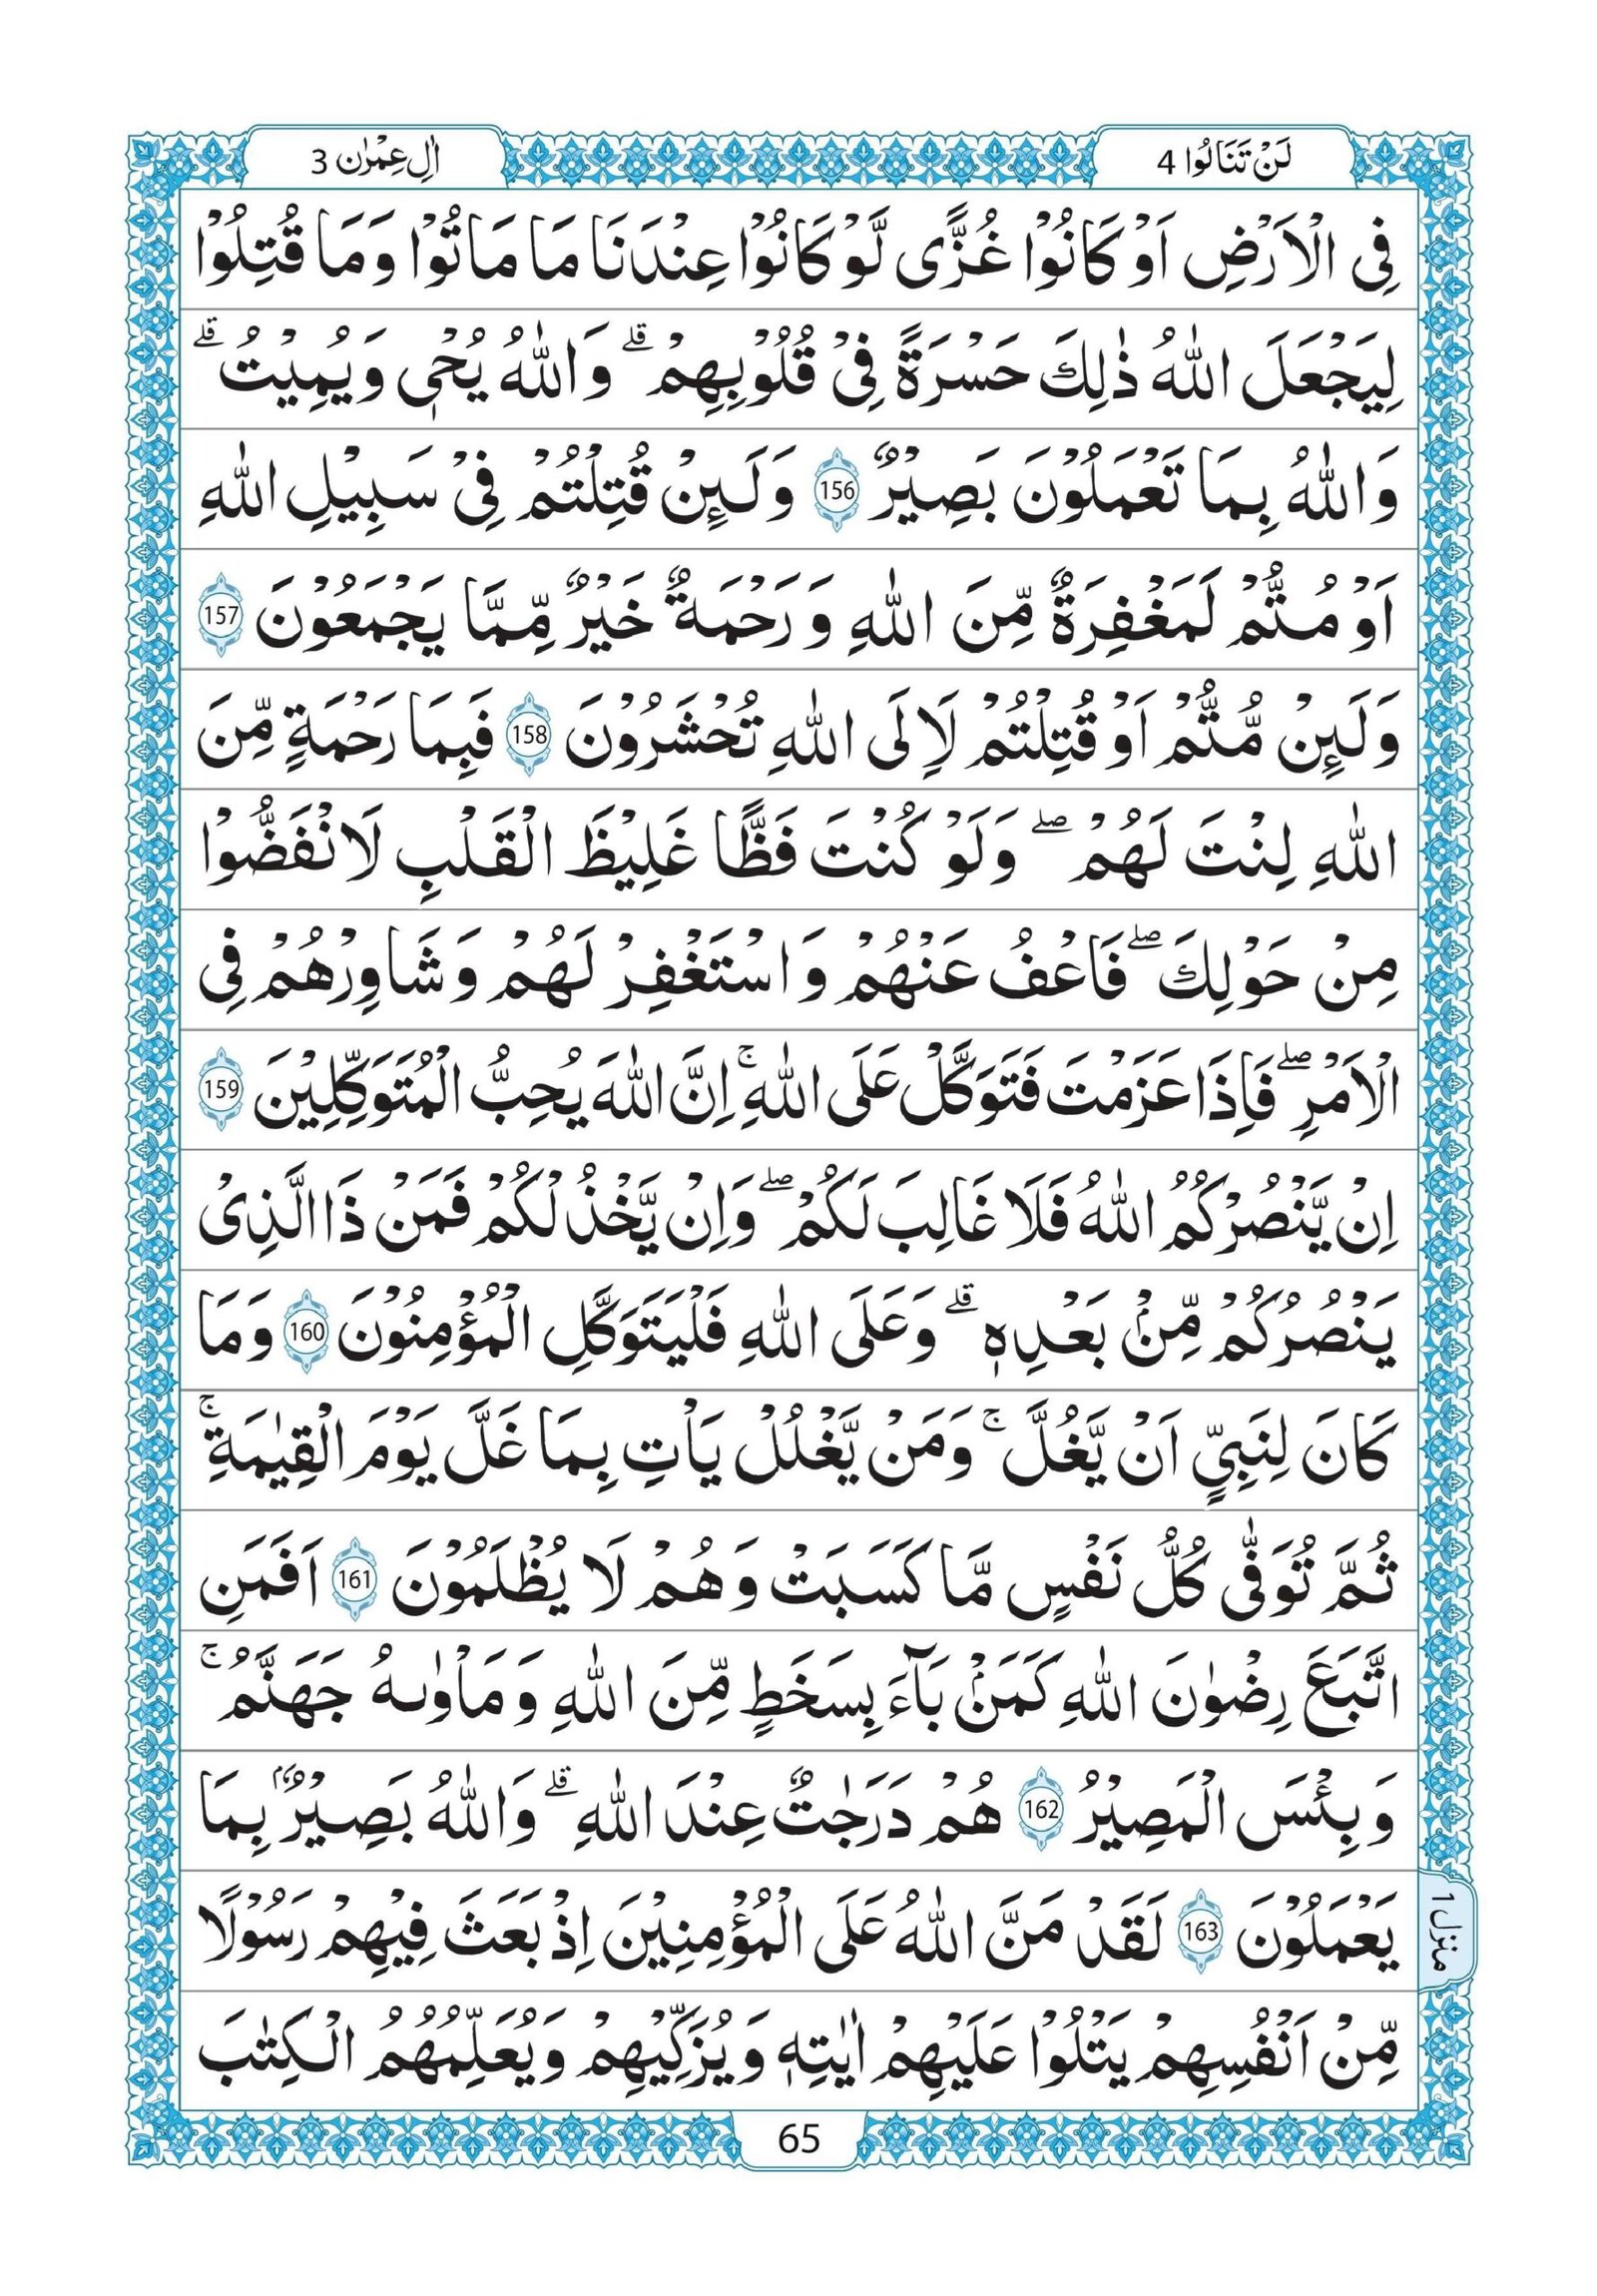 لَنْ تَنَالُوا 4
اٰلِ عِمْرٰن 3
فِی الْاَرْضِ اَوْ كَانُوْا غُزًّی لَّوْ كَانُوْا عِنْدَنَا مَا مَاتُوْا وَمَا قُتِلُوْا
لِیَجْعَلَ اللّٰهُ ذٰلِكَ حَسْرَةً فِیْ قُلُوْبِهِمْ ؕ وَاللّٰهُ یُحْیٖ وَیُمِیْتُ ؕ
وَاللّٰهُ بِمَا تَعْمَلُوْنَ بَصِیْرٌ 156 وَلَىِٕنْ قُتِلْتُمْ فِیْ سَبِیْلِ اللّٰهِ
اَوْ مُتُّمْ لَمَغْفِرَةٌ مِّنَ اللّٰهِ وَرَحْمَةٌ خَیْرٌ مِّمَّا یَجْمَعُوْنَ 157
وَلَىِٕنْ مُّتُّمْ اَوْ قُتِلْتُمْ لَاِلَی اللّٰهِ تُحْشَرُوْنَ 158 فَبِمَا رَحْمَةٍ مِّنَ
اللّٰهِ لِنْتَ لَهُمْ ۖ وَلَوْ كُنْتَ فَظًّا غَلِیْظَ الْقَلْبِ لَانْفَضُّوْا
مِنْ حَوْلِكَ ۖ فَاعْفُ عَنْهُمْ وَاسْتَغْفِرْ لَهُمْ وَشَاوِرْهُمْ فِی
الْاَمْرِ ۖ فَاِذَا عَزَمْتَ فَتَوَكَّلْ عَلَی اللّٰهِ ۚ اِنَّ اللّٰهَ یُحِبُّ الْمُتَوَكِّلِیْنَ 159
اِنْ یَّنْصُرْكُمُ اللّٰهُ فَلَا غَالِبَ لَكُمْ ۖ وَاِنْ یَّخْذُلْكُمْ فَمَنْ ذَا الَّذِیْ
یَنْصُرُكُمْ مِّنْۢ بَعْدِهٖ ۗ وَعَلَی اللّٰهِ فَلْیَتَوَكَّلِ الْمُؤْمِنُوْنَ 160 وَمَا
كَانَ لِنَبِیٍّ اَنْ یَّغُلَّ ۚ وَمَنْ یَّغْلُلْ یَاْتِ بِمَا غَلَّ یَوْمَ الْقِیٰمَةِ ۚ
ثُمَّ تُوَفّٰی كُلُّ نَفْسٍ مَّا كَسَبَتْ وَهُمْ لَا یُظْلَمُوْنَ 161 اَفَمَنِ
اتَّبَعَ رِضْوٰنَ اللّٰهِ كَمَنْۢ بَآءَ بِسَخَطٍ مِّنَ اللّٰهِ وَمَاْوٰىهُ جَهَنَّمُ ۚ
وَبِئْسَ الْمَصِیْرُ 162 هُمْ دَرَجٰتٌ عِنْدَ اللّٰهِ ۗ وَاللّٰهُ بَصِیْرٌۢ بِمَا
یَعْمَلُوْنَ 163 لَقَدْ مَنَّ اللّٰهُ عَلَی الْمُؤْمِنِیْنَ اِذْ بَعَثَ فِیْهِمْ رَسُوْلًا
منزل 1
مِّنْ اَنْفُسِهِمْ یَتْلُوْا عَلَیْهِمْ اٰیٰتِهٖ وَیُزَكِّیْهِمْ وَیُعَلِّمُهُمُ الْكِتٰبَ
65